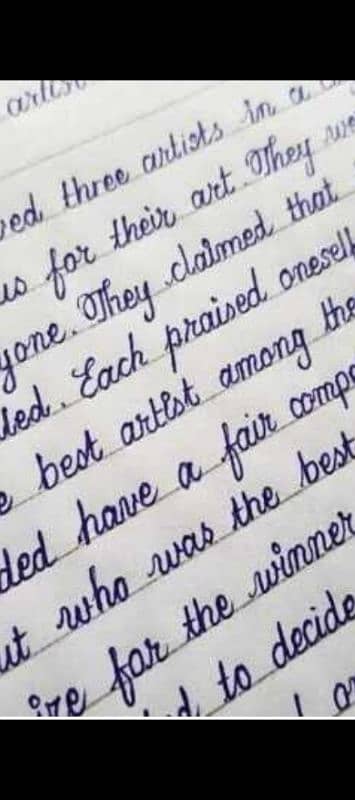 artist
ved three artists in a
us for their art. They we
yone. They claimed that
led. Each praised oneself
e best artist among the
ded have a fair comp
ut who was the best
ize for the winner
d to decide